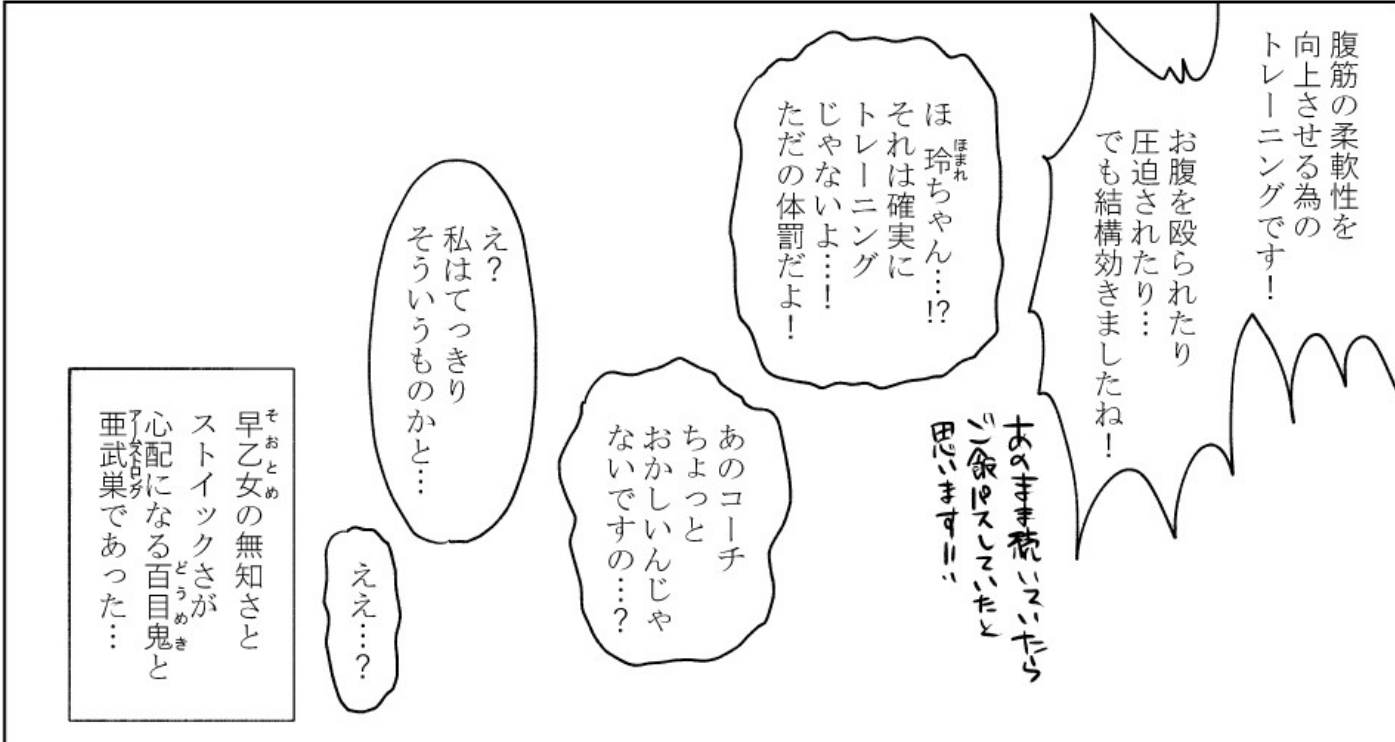 腹筋の柔軟性を
向上させる為の
トレーニングです!
お腹を殴られたり
圧迫されたり…
でも結構効きましたね!
あのまま続いていたら
ご飯リバースしていたと
思います!!
ほ 玲ちゃん…!?
ほまれ
それは確実に
トレーニング
じゃないよ…!
ただの体罰だよ!
あのコーチ
ちょっと
おかしいんじゃ
ないですの…?
え?
私はてっきり
そういうものかと…
ええ…?
早乙女の無知さと
そおとめ
ストイックさが
心配になる百目鬼と
どうめき
亜武巣であった…
アームストロング